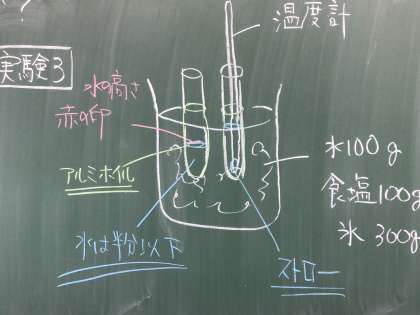 ?
温度計
実験3
水の高さ
赤の印
アルミホイル
水は半分以下
ストロー
水100g
食塩100g
氷300g